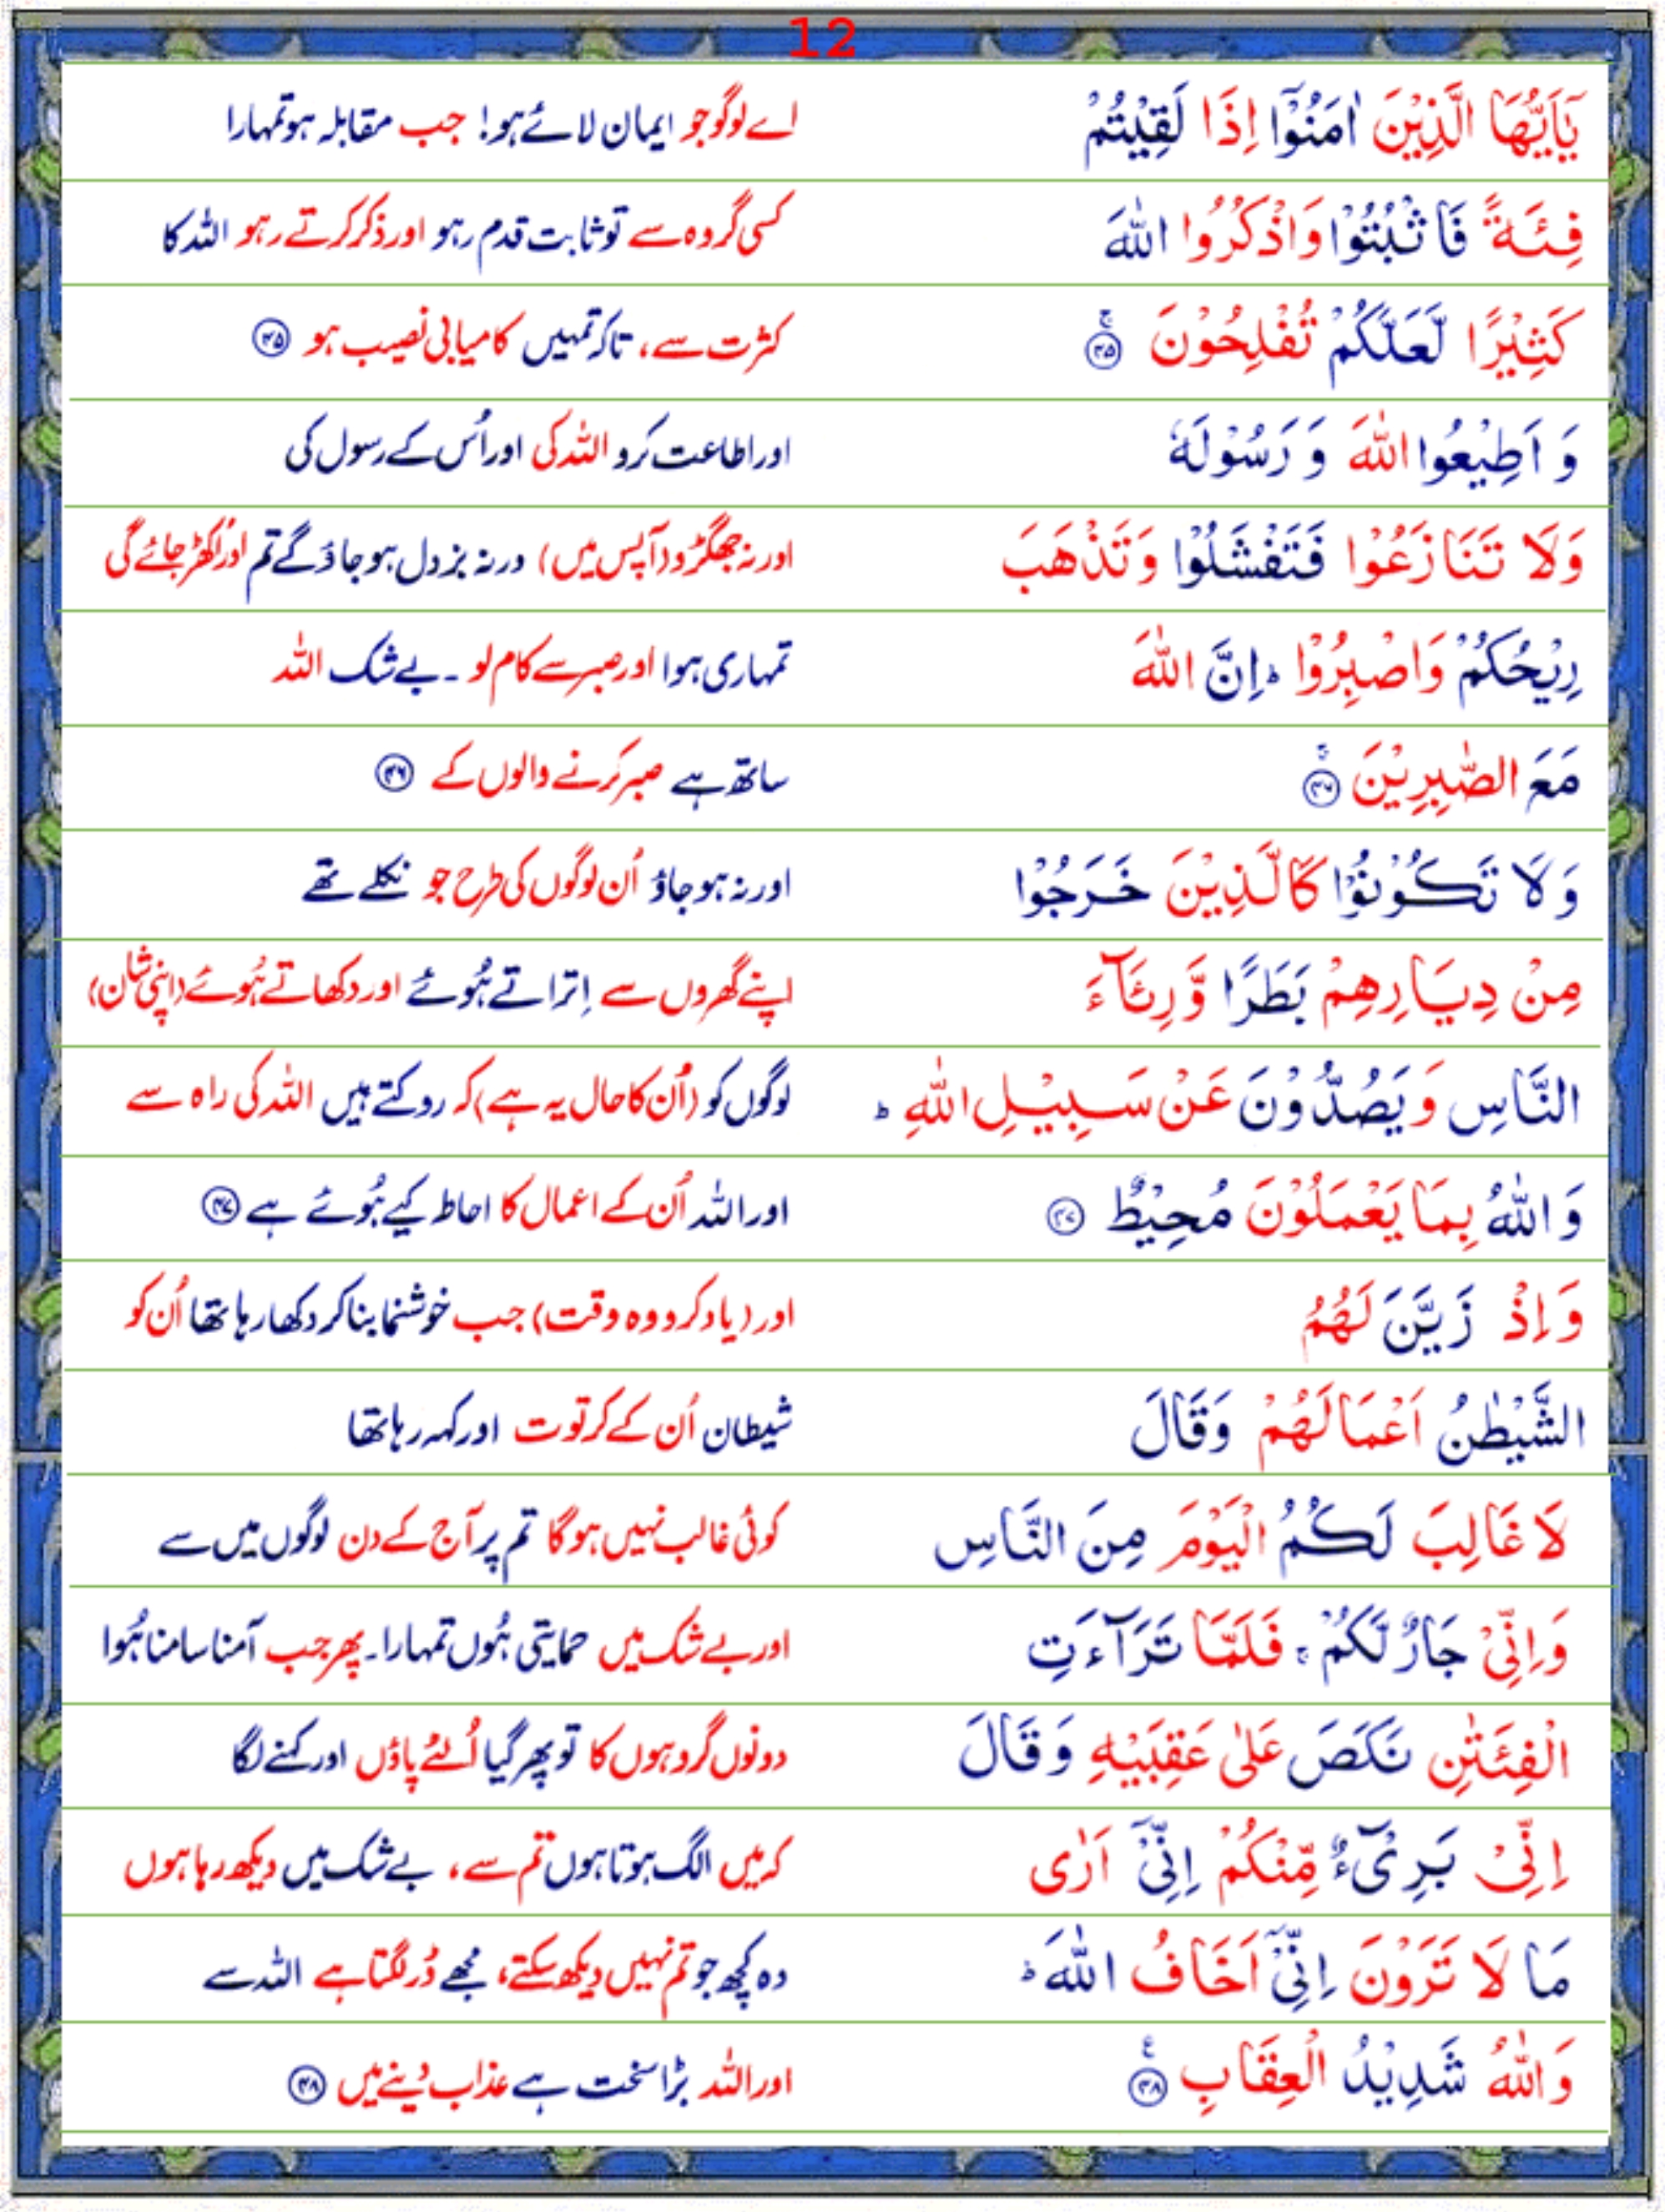 12
يٰۤاَيُّهَا الَّذِيْنَ اٰمَنُوْۤا اِذَا لَقِيْتُمْ اے لوگو جو ایمان لائے ہو! جب مقابلہ ہو تمہارا
فِئَةً فَاثْبُتُوْا وَاذْكُرُوا اللّٰهَ کسی گروہ سے تو ثابت قدم رہو اور ذکر کرتے رہو اللہ کا
كَثِيْرًا لَّعَلَّكُمْ تُفْلِحُوْنَ ۚ‏ ﴿۴۵﴾ کثرت سے، تاکہ تمہیں کامیابی نصیب ہو ﴿۴۵﴾
وَ اَطِيْعُوا اللّٰهَ وَ رَسُوْلَهٗ اور اطاعت کرو اللہ کی اور اُس کے رسول کی
وَلَا تَنَازَعُوْا فَتَفْشَلُوْا وَتَذْهَبَ اور نہ جھگڑو (آپس میں) ورنہ بزدل ہو جاؤ گے تم اور اُکھڑ جائے گی
رِيْحُكُمْ وَاصْبِرُوْا ؕ اِنَّ اللّٰهَ تمہاری ہوا اور صبر سے کام لو ۔ بے شک اللہ
مَعَ الصّٰبِرِيْنَ ۚ ﴿۴۶﴾ ساتھ ہے صبر کرنے والوں کے ﴿۴۶﴾
وَلَا تَكُوْنُوْا كَالَّذِيْنَ خَرَجُوْا اور نہ ہو جاؤ اُن لوگوں کی طرح جو نکلے تھے
مِنْ دِيَارِهِمْ بَطَرًا وَّرِئَآءَ اپنے گھروں سے اِتراتے ہُوئے اور دکھاتے ہُوئے (اپنی شان)
النَّاسِ وَيَصُدُّوْنَ عَنْ سَبِيْلِ اللّٰهِ ؕ لوگوں کو (اُن کا حال یہ ہے) کہ روکتے ہیں اللہ کی راہ سے
وَاللّٰهُ بِمَا يَعْمَلُوْنَ مُحِيْطٌ ﴿۴۷﴾ اور اللہ اُن کے اعمال کا احاطہ کیے ہُوئے ہے ﴿۴۷﴾
وَاِذْ زَيَّنَ لَهُمُ اور (یاد کرو وہ وقت) جب خوشنما بنا کر دکھا رہا تھا اُن کو
الشَّيْطٰنُ اَعْمَالَهُمْ وَقَالَ شیطان اُن کے کرتوت اور کہہ رہا تھا
لَا غَالِبَ لَكُمُ الْيَوْمَ مِنَ النَّاسِ کوئی غالب نہیں ہوگا تم پر آج کے دن لوگوں میں سے
وَاِنِّىْ جَارٌ لَّكُمْ ۚ فَلَمَّا تَرَآءَتِ اور بے شک میں حمایتی ہُوں تمہارا۔ پھر جب آمنا سامنا ہُوا
الْفِئَتٰنِ نَكَصَ عَلٰى عَقِبَيْهِ وَقَالَ دونوں گروہوں کا تو پھر گیا اُلٹے پاؤں اور کہنے لگا
اِنِّىْ بَرِىْٓءٌ مِّنْكُمْ اِنِّىْۤ اَرٰى کہ میں الگ ہوتا ہوں تم سے، بے شک میں دیکھ رہا ہوں
مَا لَا تَرَوْنَ اِنِّىْۤ اَخَافُ اللّٰهَ ؕ وہ کچھ جو تم نہیں دیکھ سکتے، مجھے ڈر لگتا ہے اللہ سے
وَاللّٰهُ شَدِيْدُ الْعِقَابِ ۧ ﴿۴۸﴾ اور اللہ بڑا سخت ہے عذاب دینے میں ﴿۴۸﴾